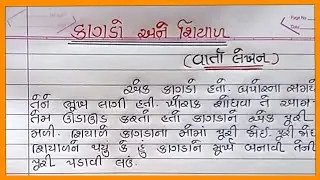 Page No.
Date
કાગડો અને શિયાળ
(વાર્તા લેખન)
એક કાગડો હતો. બપોરના સમયે
તેને ભુખ લાગી હતી. ખોરાક શોધવા તે આમ-
તેમ ઊડાઊડ કરતો હતો કાગડાને એક પૂરી
મળી. શિયાળે કાગડાના મોંમાં પૂરી જોઈ. પૂરી જોઈ
શિયાળને થયુ કે હું કાગડાને મુર્ખ બનાવી તેની
પૂરી પડાવી લઉં.